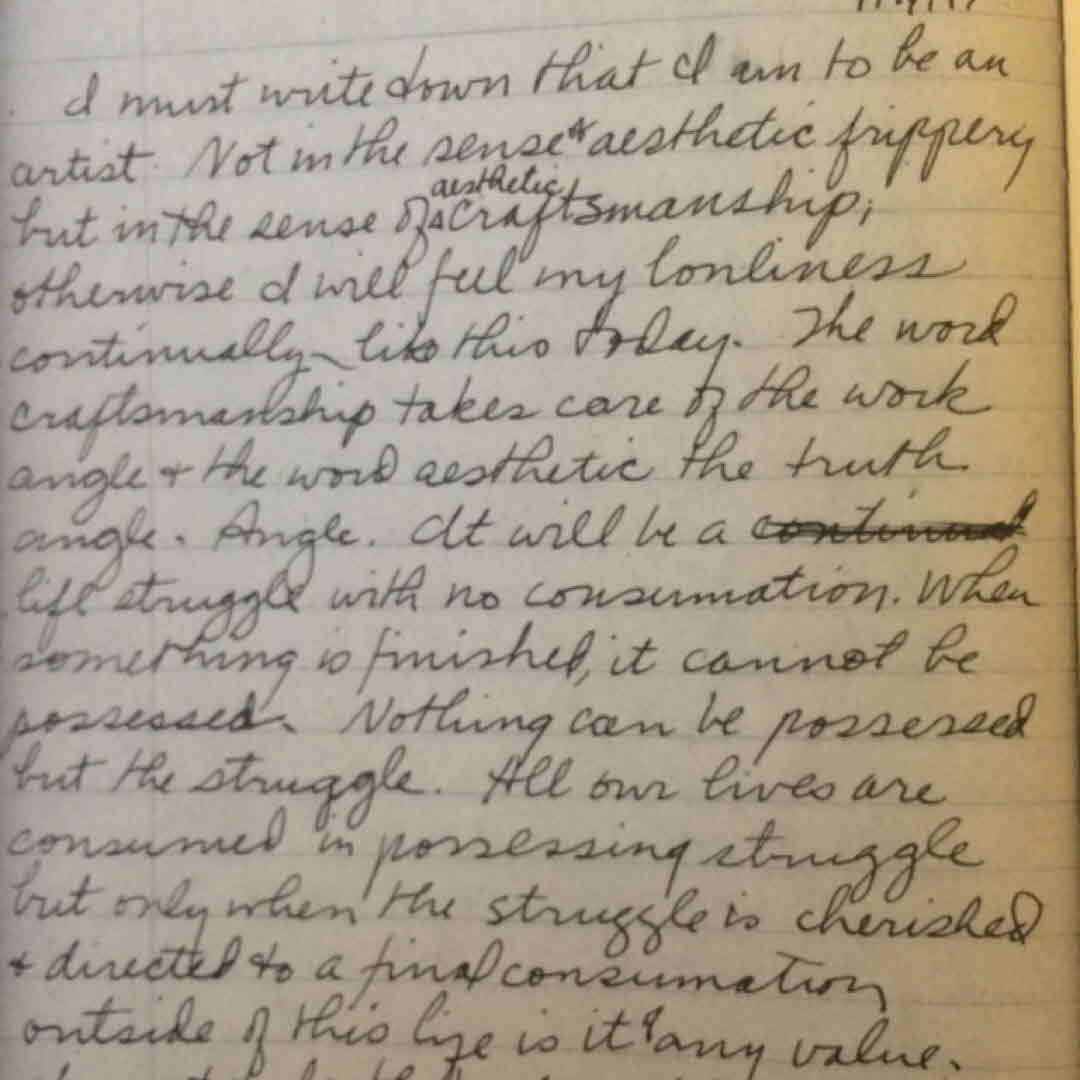 I must write down that I am to be an
artist. Not in the sense of aesthetic frippery
but in the sense of aesthetic craftsmanship;
otherwise I will feel my lonliness
continually like this today. The word
craftsmanship takes care of the work
angle + the word aesthetic the truth
angle. Angle. It will be a continual
life struggle with no consumation. When
something is finished, it cannot be
possessed. Nothing can be possessed
but the struggle. All our lives are
consumed in possessing struggle
but only when the struggle is cherished
+ directed to a final consumation
outside of this life is it of any value.